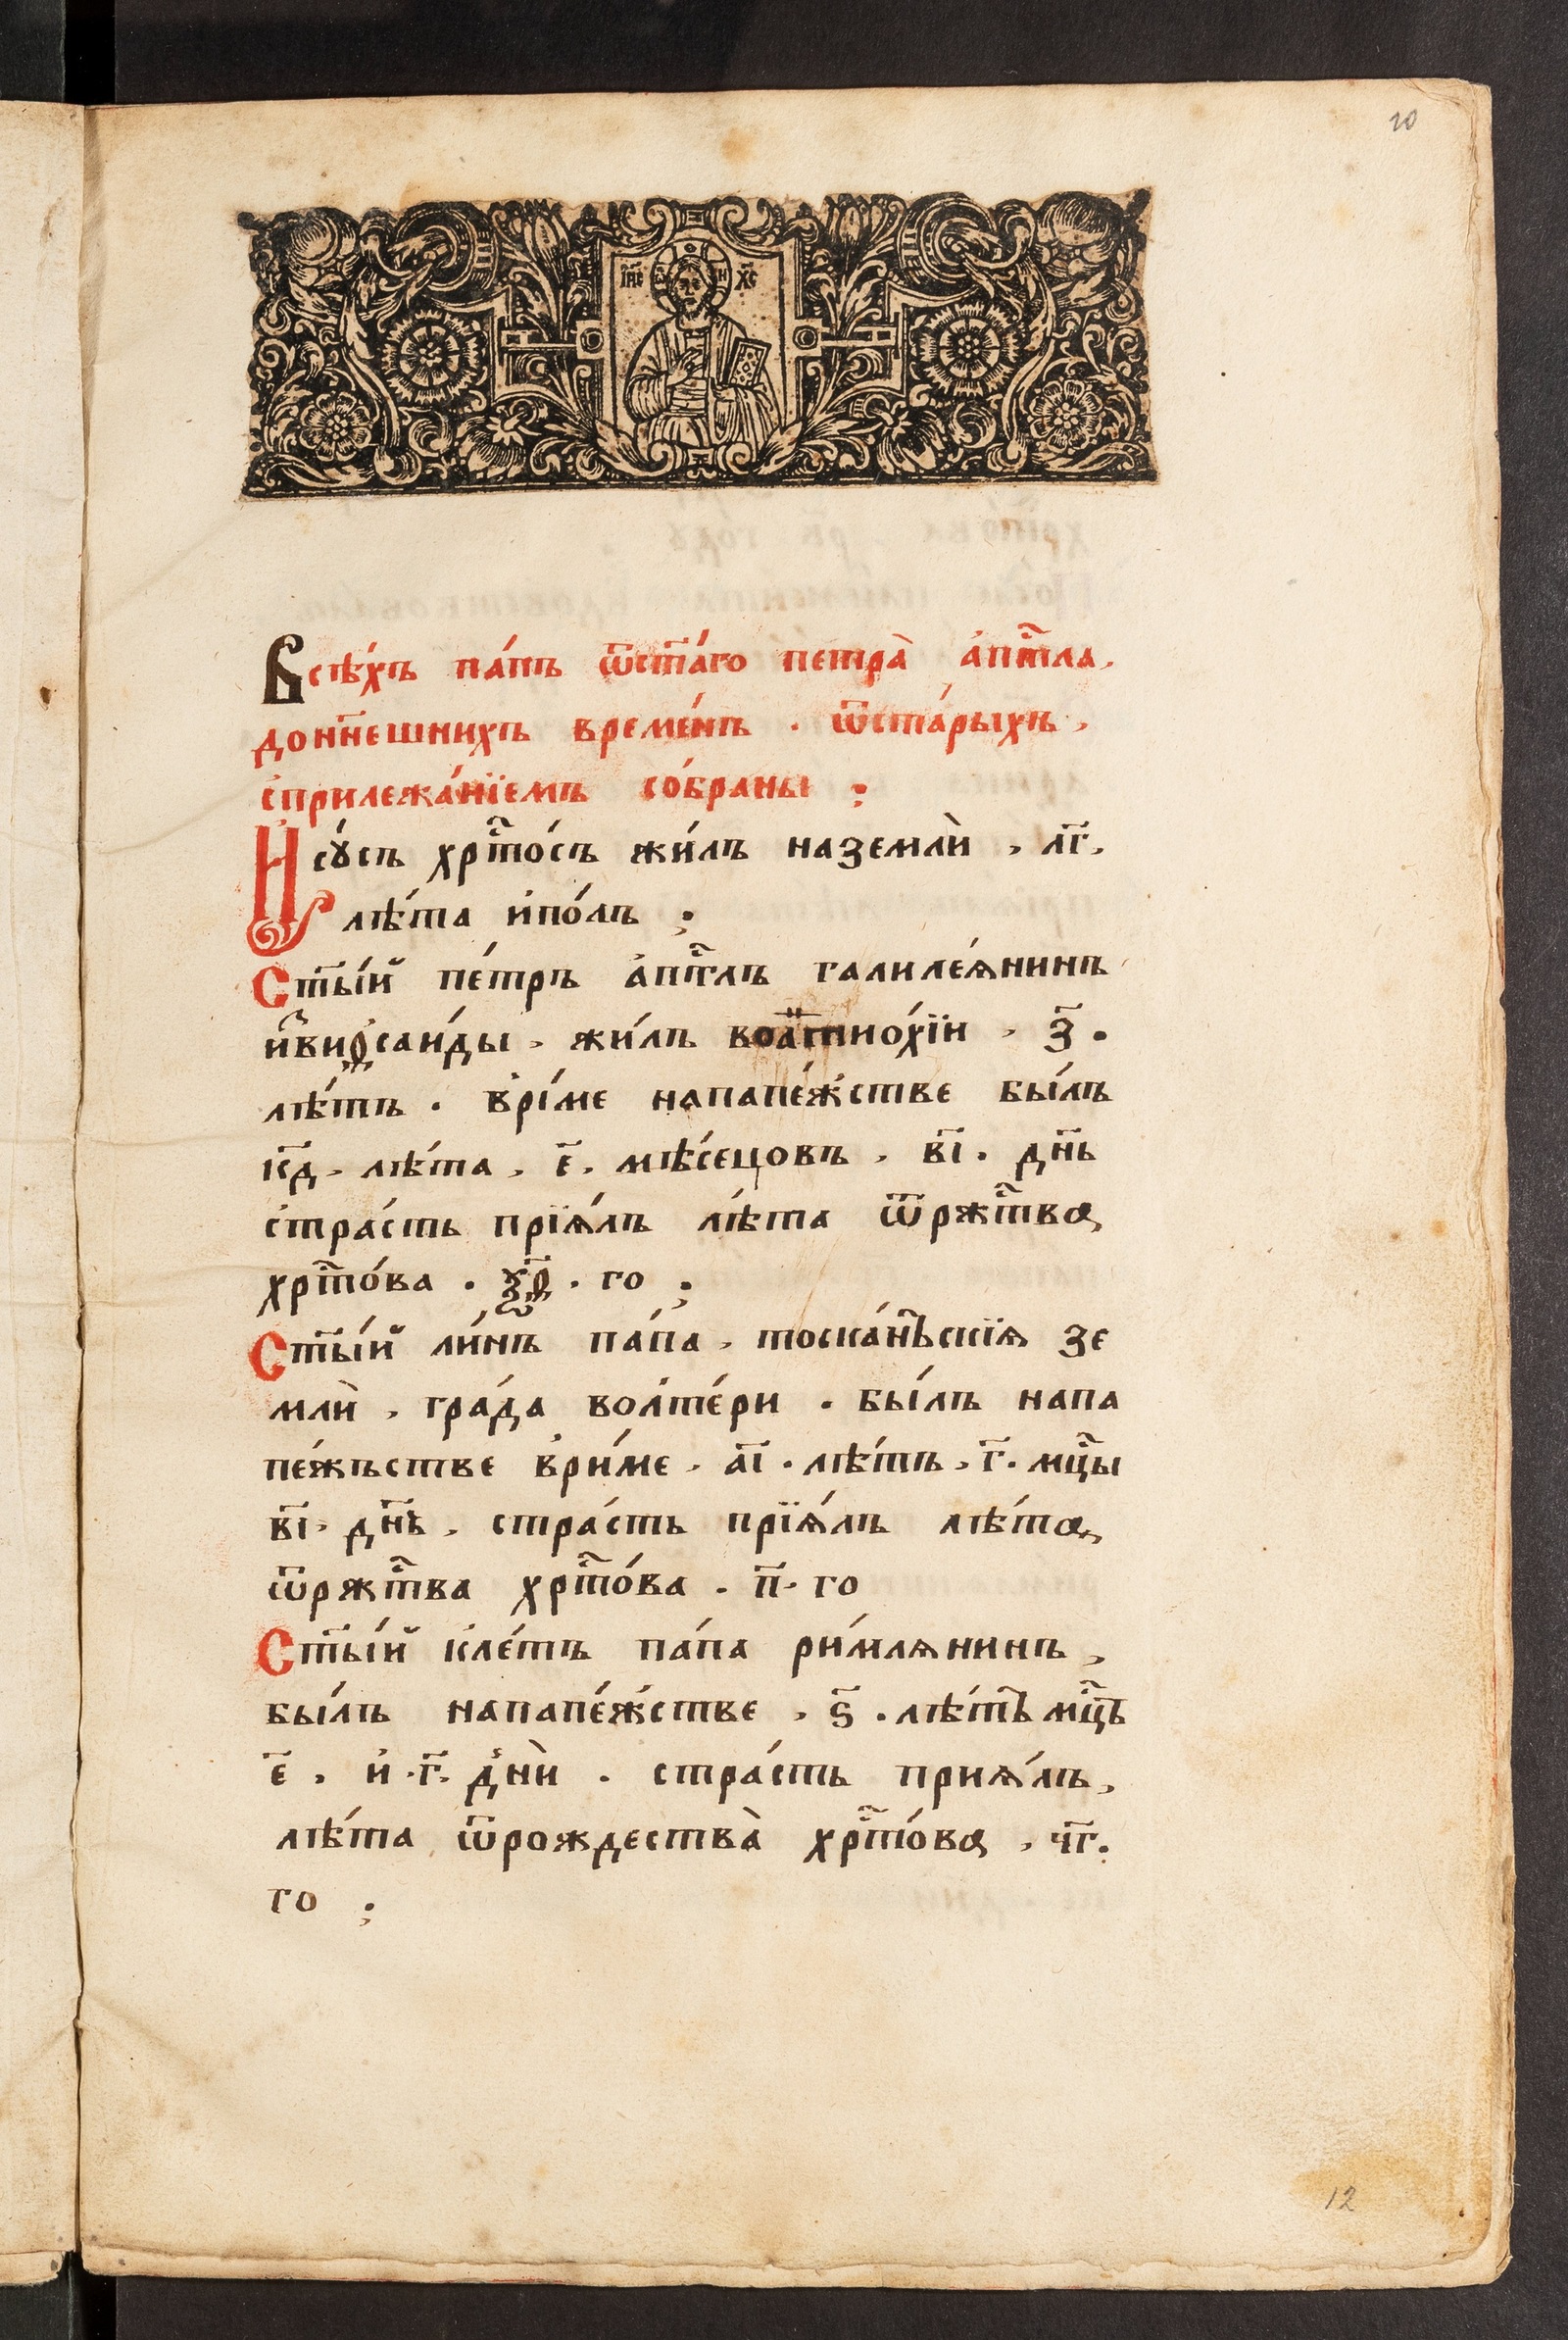 20
І҃ИС Х҃С
Всѣ́хъ па́пъ ѿст҃а́го петра̀ а҆пⷭ҇тла,
дон҃нешнихъ време́нъ . ѿста́рыхъ,
с̾прилежа́нїемъ со́браны ;
Исꙋ́съ хрⷭ҇то́съ жи́лъ на землѝ , л҃г,
лѣ́та и҆по́лъ ;
Ст҃ы́й пе́тръ а҆пⷭ҇тлъ галиле́ѧнинъ
и҆з̾виѳсаи́ды , жи́лъ воа҆нтиохі́и , з҃ .
лѣ́тъ . в̾рі́ме напапе́жстве бы́лъ
к҃д , лѣ́та , е҃ , мѣ́сецовъ , в҃і . дн҃ь
стра́сть прїѧ́лъ лѣ́та ѿржⷭ҇тва
хрⷭ҇то́ва . ѯ҃ѳ . го ;
Ст҃ы́й ли́нъ па́па , тоска́нъскїѧ зе
млѝ , гра́да волте́ри . бы́лъ напа
пе́жъстве в̾ри́ме , а҃і . лѣ́тъ , г҃ . мцⷭ҇ы
в҃і , дн҃ь , стра́сть прїѧ́лъ лѣ́та
ѿржⷭ҇тва хрⷭ҇то́ва . п҃ . го
Ст҃ы́й кле́тъ па́па ри́млѧнинъ ,
бы́лъ напапе́жстве , ѕ҃ . лѣ́тъ мцⷭ҇ъ
е҃ , и҆ . г҃ . дни̾ . стра́сть приѧ́лъ,
лѣ́та ѿрождества̀ хрⷭ҇то́ва , ч҃г .
го ;
12